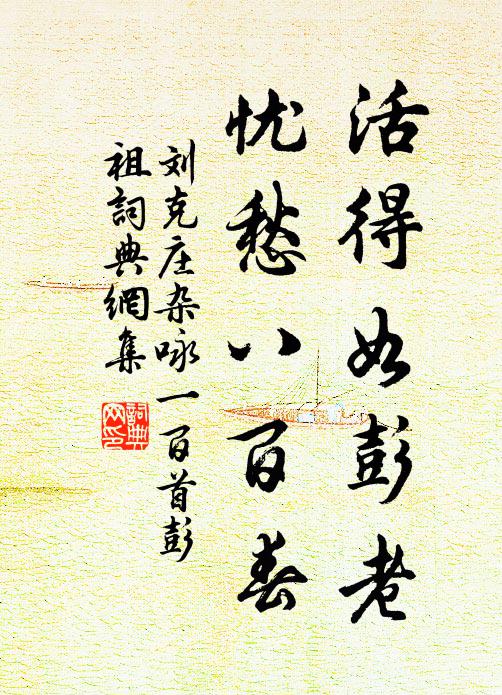 活得如彭老
忧愁八百春
刘克庄杂咏一百首彭
祖詞典網集
詞典
网印